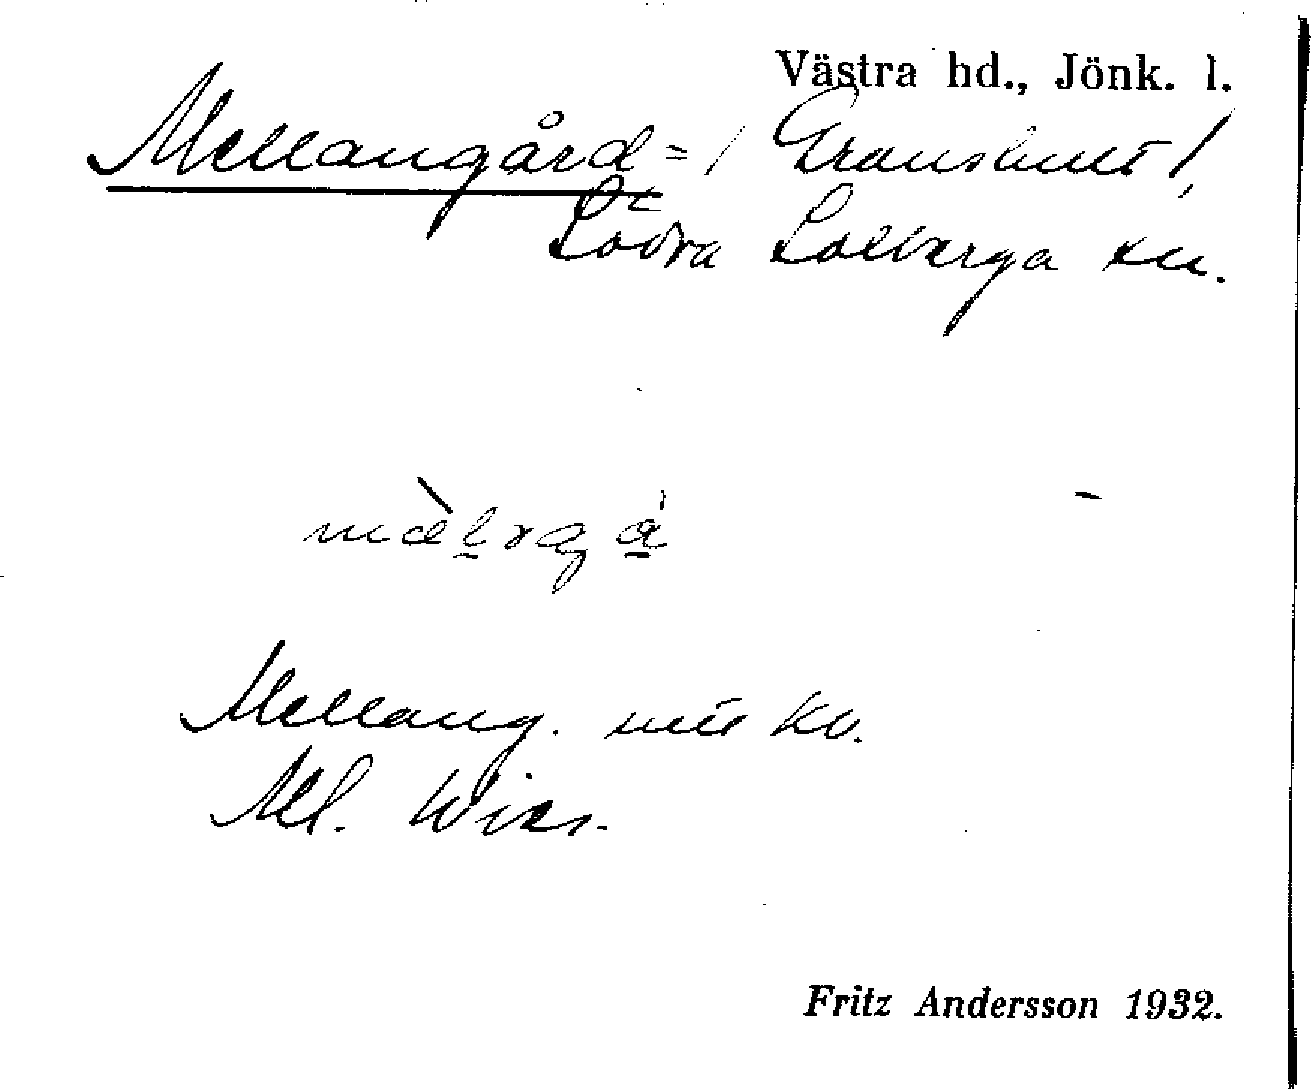 Västra hd., Jönk. l.
Mellangård = / Granshult /,
Södra Solberga sn.
Mellang. mtl kv.
Ml. Wies.
Fritz Andersson 1932.